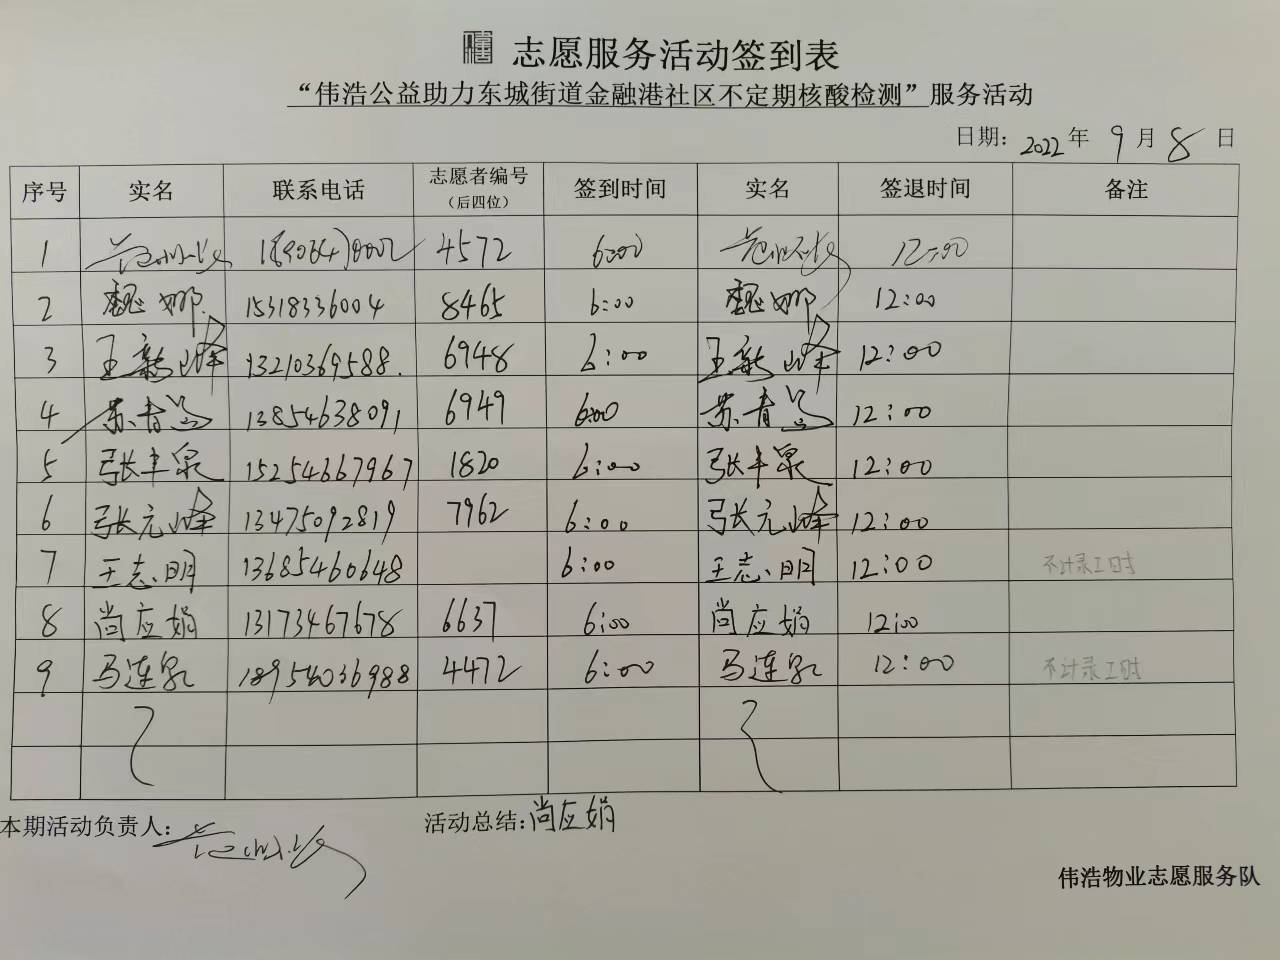 志愿服务活动签到表
“伟浩公益助力东城街道金融港社区不定期核酸检测”服务活动
日期：2022年9月8日
序号 实名 联系电话 志愿者编号（后四位） 签到时间 实名 签退时间 备注
1 4572 6:00 12:00
2 魏娜 15318336004 8465 6:00 魏娜 12:00
3 王新峰 13210369588. 6948 6:00 王新峰 12:00
4 苏青 13854638091 6949 6:00 苏青 12:00
5 张丰泉 15254667967 1820 6:00 张丰泉 12:00
6 张元峰 13475092819 7962 6:00 张元峰 12:00
7 王志明 13685460648 6:00 王志明 12:00 不计录工时
8 尚应娟 13173467678 6637 6:00 尚应娟 12:00
9 马连泉 18954036988 4472 6:00 马连泉 12:00 不计录工时
本期活动负责人： 活动总结：尚应娟
伟浩物业志愿服务队